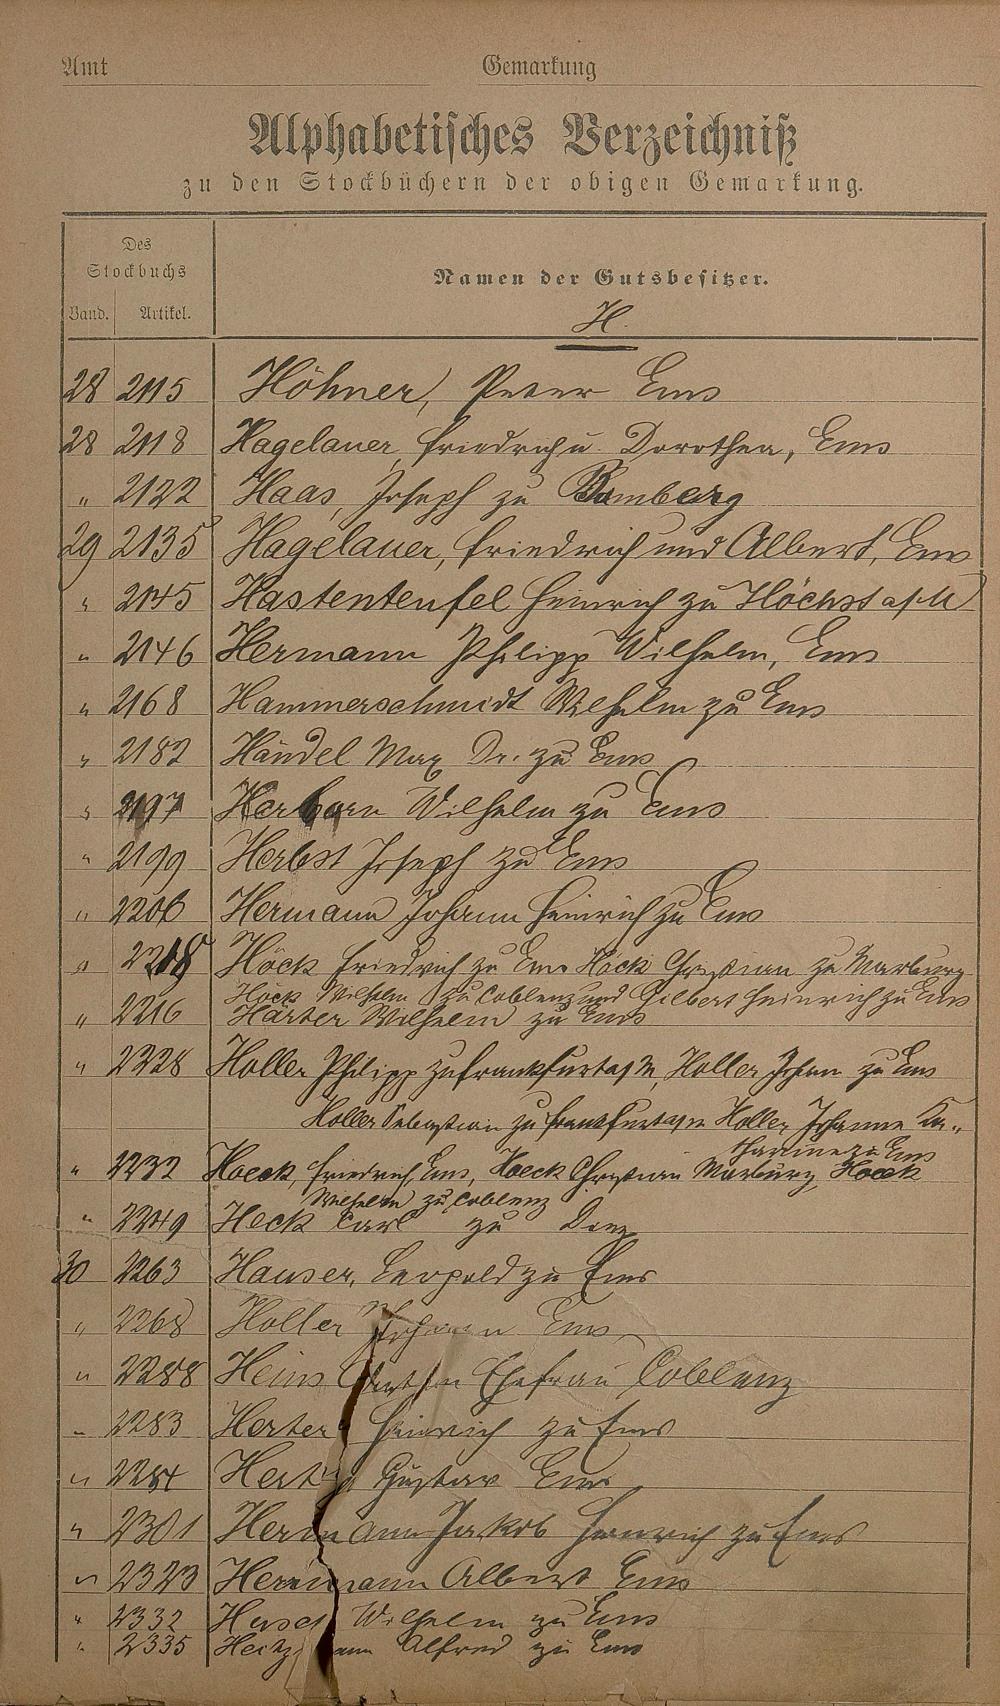 Amt Gemarkung
Alphabetisches Verzeichniß
zu den Stockbüchern der obigen Gemarkung.
Des
Stockbuchs
Namen der Gutsbesitzer.
Band. Artikel.
H.
28 2115 Höhner, Peter Ems
28 2118 Hagelauer, Friedrich u. Dorothea, Ems
" 2122 Haas, Joseph zu Bamberg
29 2135 Hagelauer, Friedrich und Albert, Ems
" 2145 Hastenteufel Heinrich zu Höchst a/M
" 2146 Hermann Philipp Wilhelm, Ems
" 2168 Hammerschmidt Wilhelm zu Ems
" 2182 Händel Max Dr. zu Ems
" 2197 Herborn Wilhelm zu Ems
" 2199 Herbst Joseph zu Ems
" 2206 Hermann Johann Heinrich zu Ems
" Höck Friedrich zu Ems Höck Christian zu Marburg
Höck Wilhelm zu Coblenz und Gilbert Heinrich zu Ems
" 2216 Härter Wilhelm zu Ems
" 2228 Holler Philipp zu Frankfurt a/M, Holler Johann zu Ems
Holler Sebastian zu Frankfurt a/M Holler Johanna Ka-
tharina zu Ems
" 2232 Hoeck, Friedrich, Ems, Hoeck Christian Marburg, Hoeck
Wilhelm zu Coblenz
" 2249 Heck Carl zu Diez
30 2263 Hauser, Leopold zu Ems
" 2268 Holler Johann Ems
" 2288 Heins Ehefrau Coblenz
" 2283 Herter Heinrich zu Ems
" 2284 Gustav Ems
" 2301 Hermann Jakob Heinrich zu Ems
" 2323 Herrmann Albert Ems
" 2332 Wilhelm zu Ems
" 2335 Alfred zu Ems